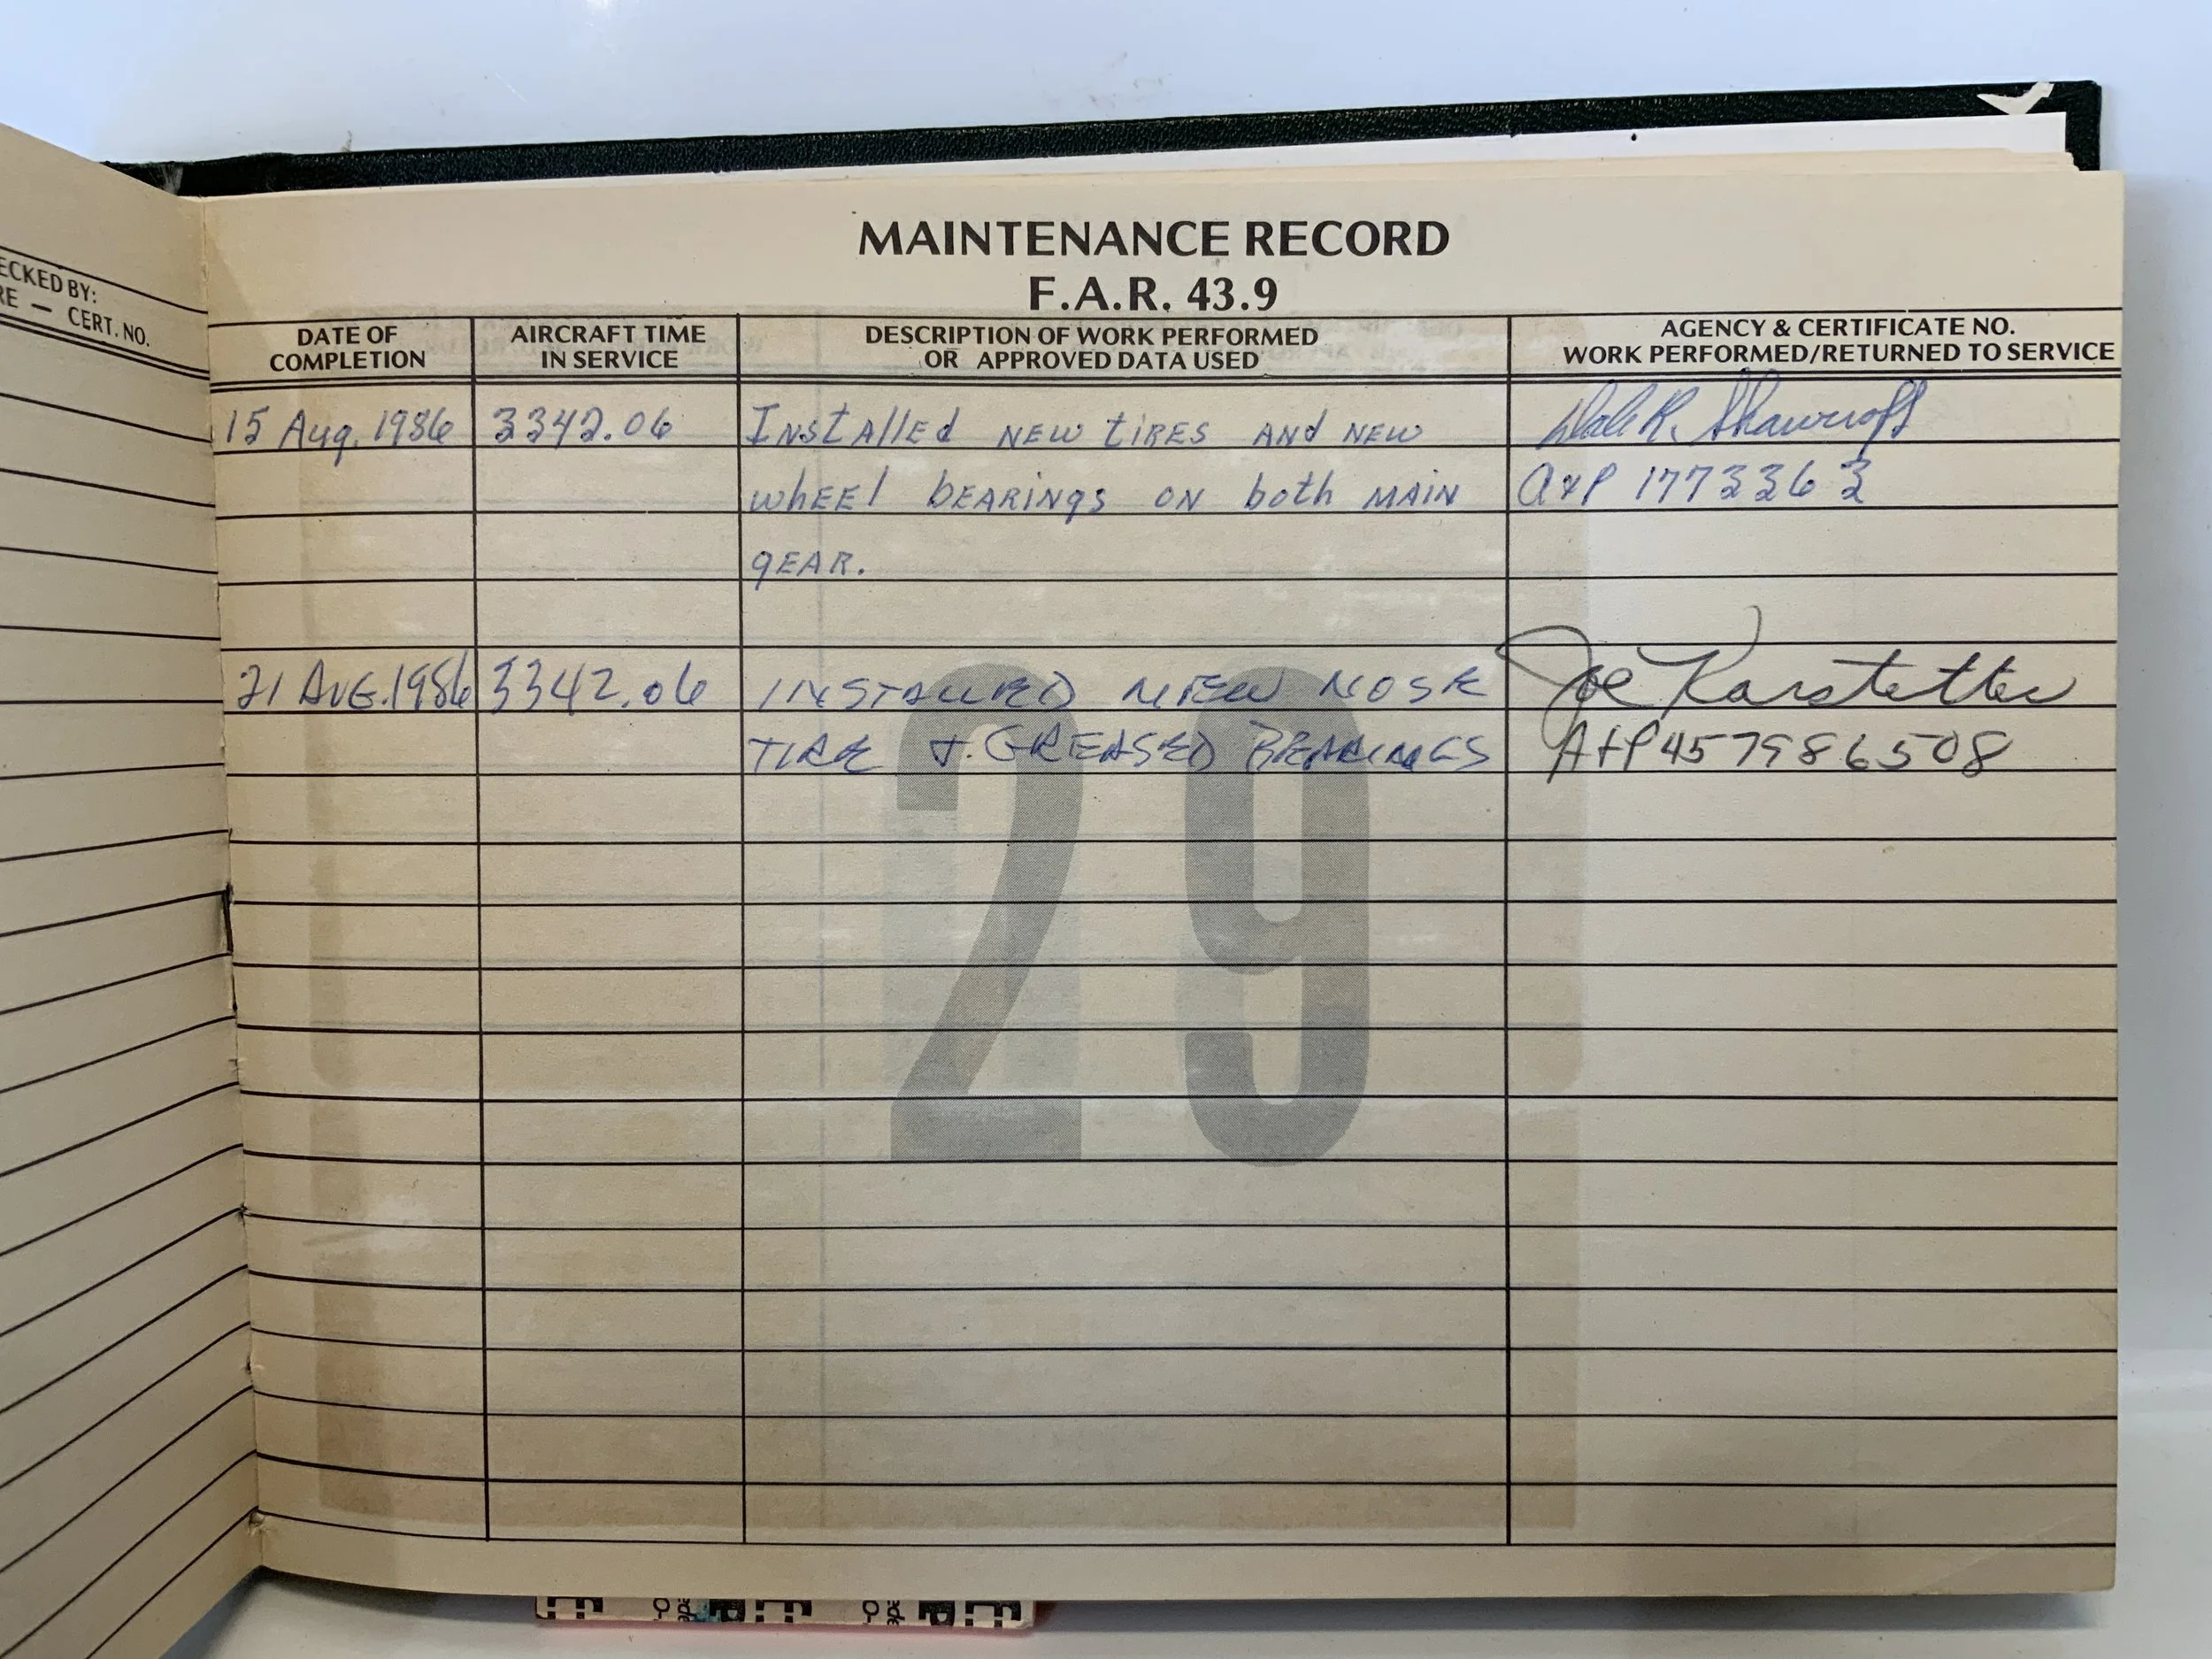 MAINTENANCE RECORD
F.A.R. 43.9
ECKED BY:
RE — CERT. NO.
DATE OF COMPLETION
AIRCRAFT TIME IN SERVICE
DESCRIPTION OF WORK PERFORMED OR APPROVED DATA USED
AGENCY & CERTIFICATE NO. WORK PERFORMED/RETURNED TO SERVICE
15 Aug. 1986 3342.06 Installed new tires and new Dale R. Shawcroft
wheel bearings on both main A&P 1773363
gear.
21 AUG. 1986 3342.06 INSTALLED NEW NOSE Joe Karstetter
TIRE & GREASED BEARINGS A+P 457986508
29